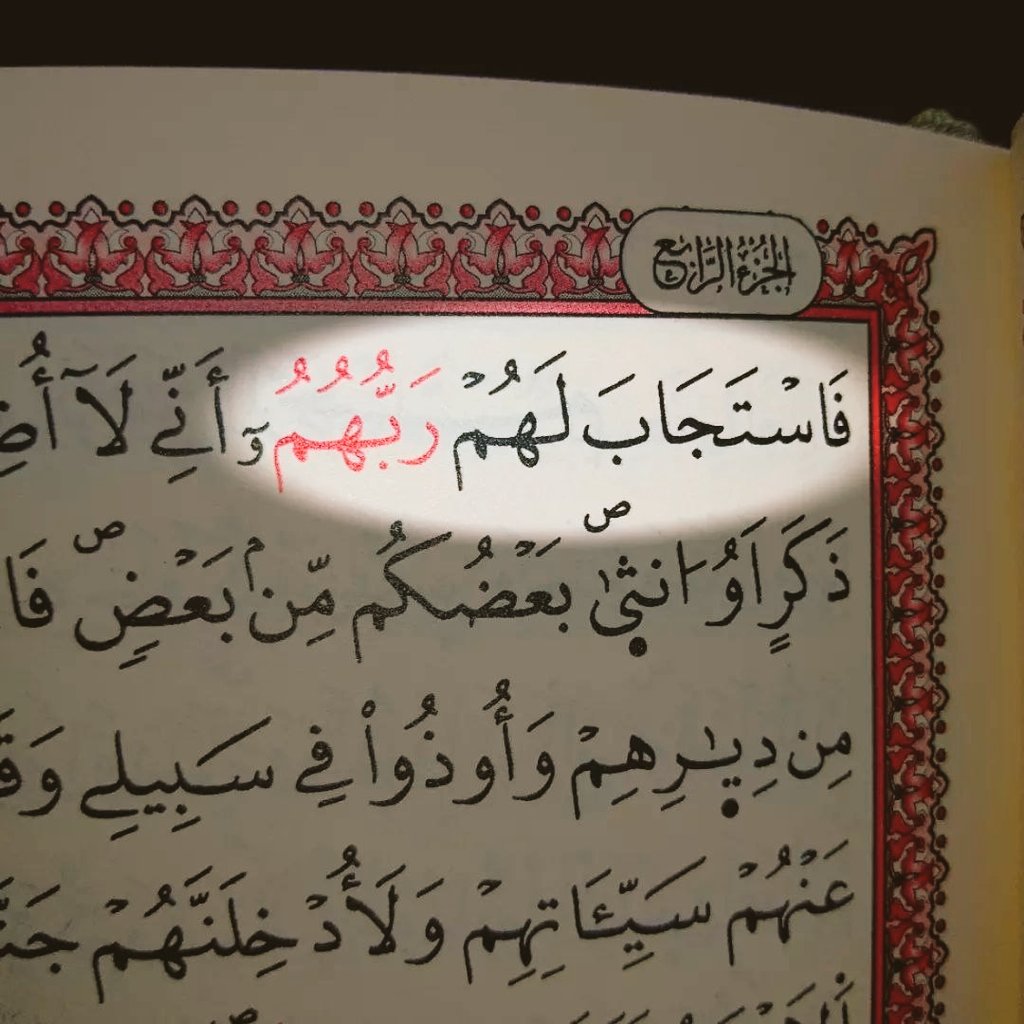 الجُزْءُ الرَّابِعُ
فَاسْتَجَابَ لَهُمْ رَبُّهُمُۥٓ أَنِّے لَآ أُضِ
ذَكَرٍ اَوُ ا۟نث۪ىٰ بَعْضُكُم مِّنۢ بَعْضٖ فَا
مِن دِيٰ۪رِهِمْ وَأُوذُوا۟ فِے سَبِيلِے وَقَ
عَنْهُمْ سَيِّـَٔاتِهِمْ وَلَأُدْخِلَنَّهُمْ جَنَّ